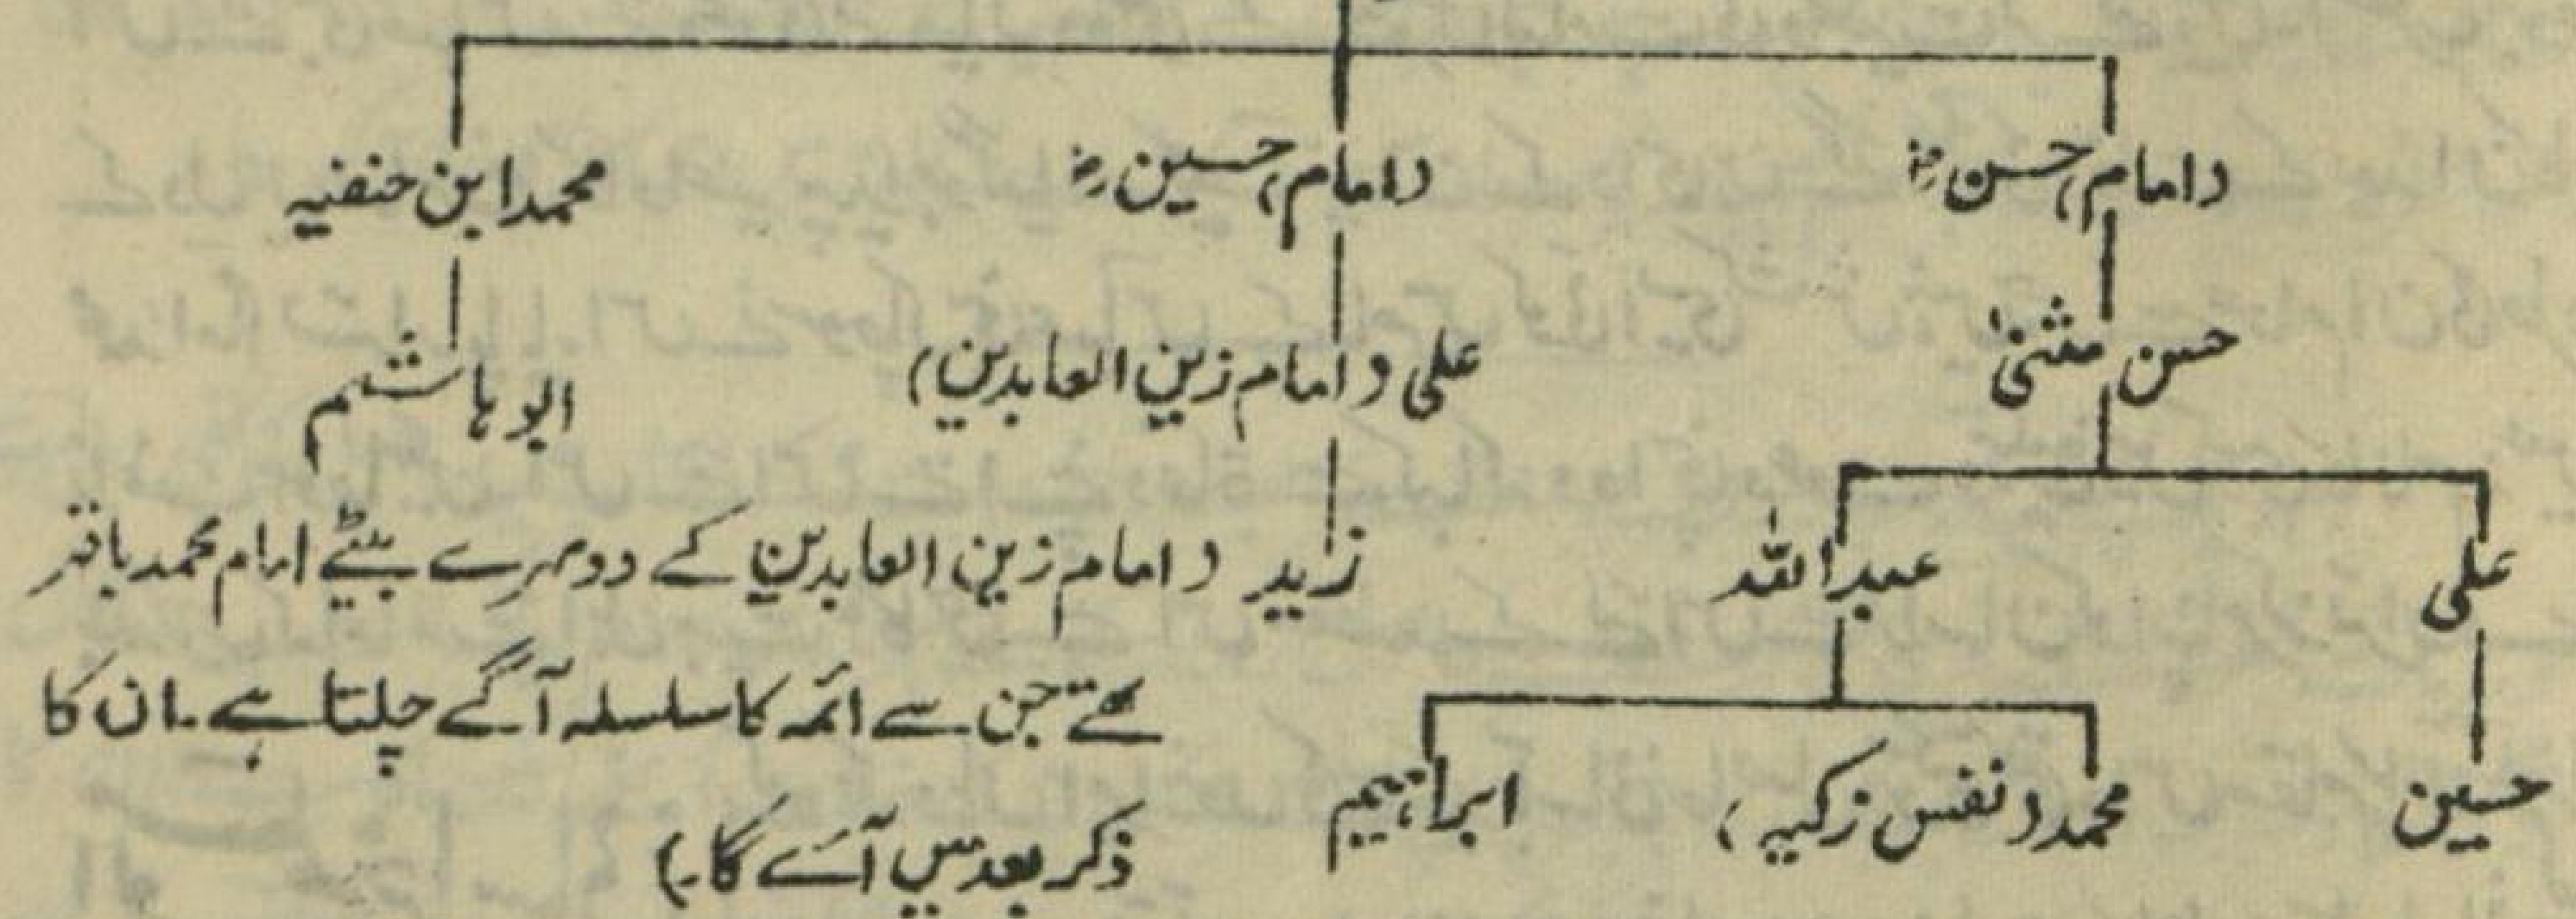 (امام) حسنؓ (امام) حسینؓ محمد ابن حنفیہ
حسن مثنیٰ علی (امام زین العابدین) ابو ہاشم
علی عبداللہ زید (امام زین العابدین کے دوسرے بیٹے امام محمد باقر
تھے جن سے ائمہ کا سلسلہ آگے چلتا ہے۔ ان کا
حسین محمد (نفس زکیہ) ابراہیم
ذکر بعد میں آئے گا۔)